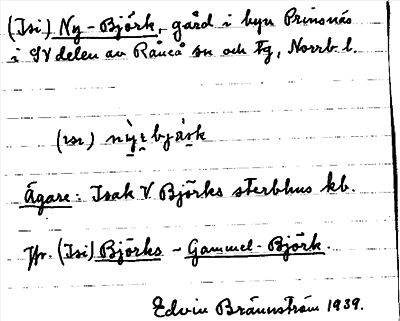 (Isi) Ny-Björk, gård i byn Prinsnäs
i SV delen av Råneå sn och tg, Norrb l.
Ägare: Isak V Björks sterbhus kb.
Jfr. (Isi) Björks - Gammel-Björk.
Edvin Brännström 1939.